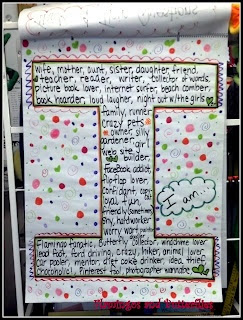 wife, mother, aunt, sister, daughter, friend,
teacher, reader, writer, collector of words,
picture book lover, internet surfer, beach comber,
book hoarder, loud laugher, night out w/the girls
family, runner
crazy pets
owner, silly
gardener, girl
web site
builder,
facebook addict,
flip flop lover,
confidant, copy
cat
loyal, fun
friendly (sometimes)
shy, hard worker
worry wart
I am...
Flamingo fanatic, Butterfly collector, windchime lover
lead foot, ford driving, crazy, inker, animal lover
car pooler, mentor, diet coke drinker, idea thief,
chocoholic, Pinterest fool, photographer wannabe